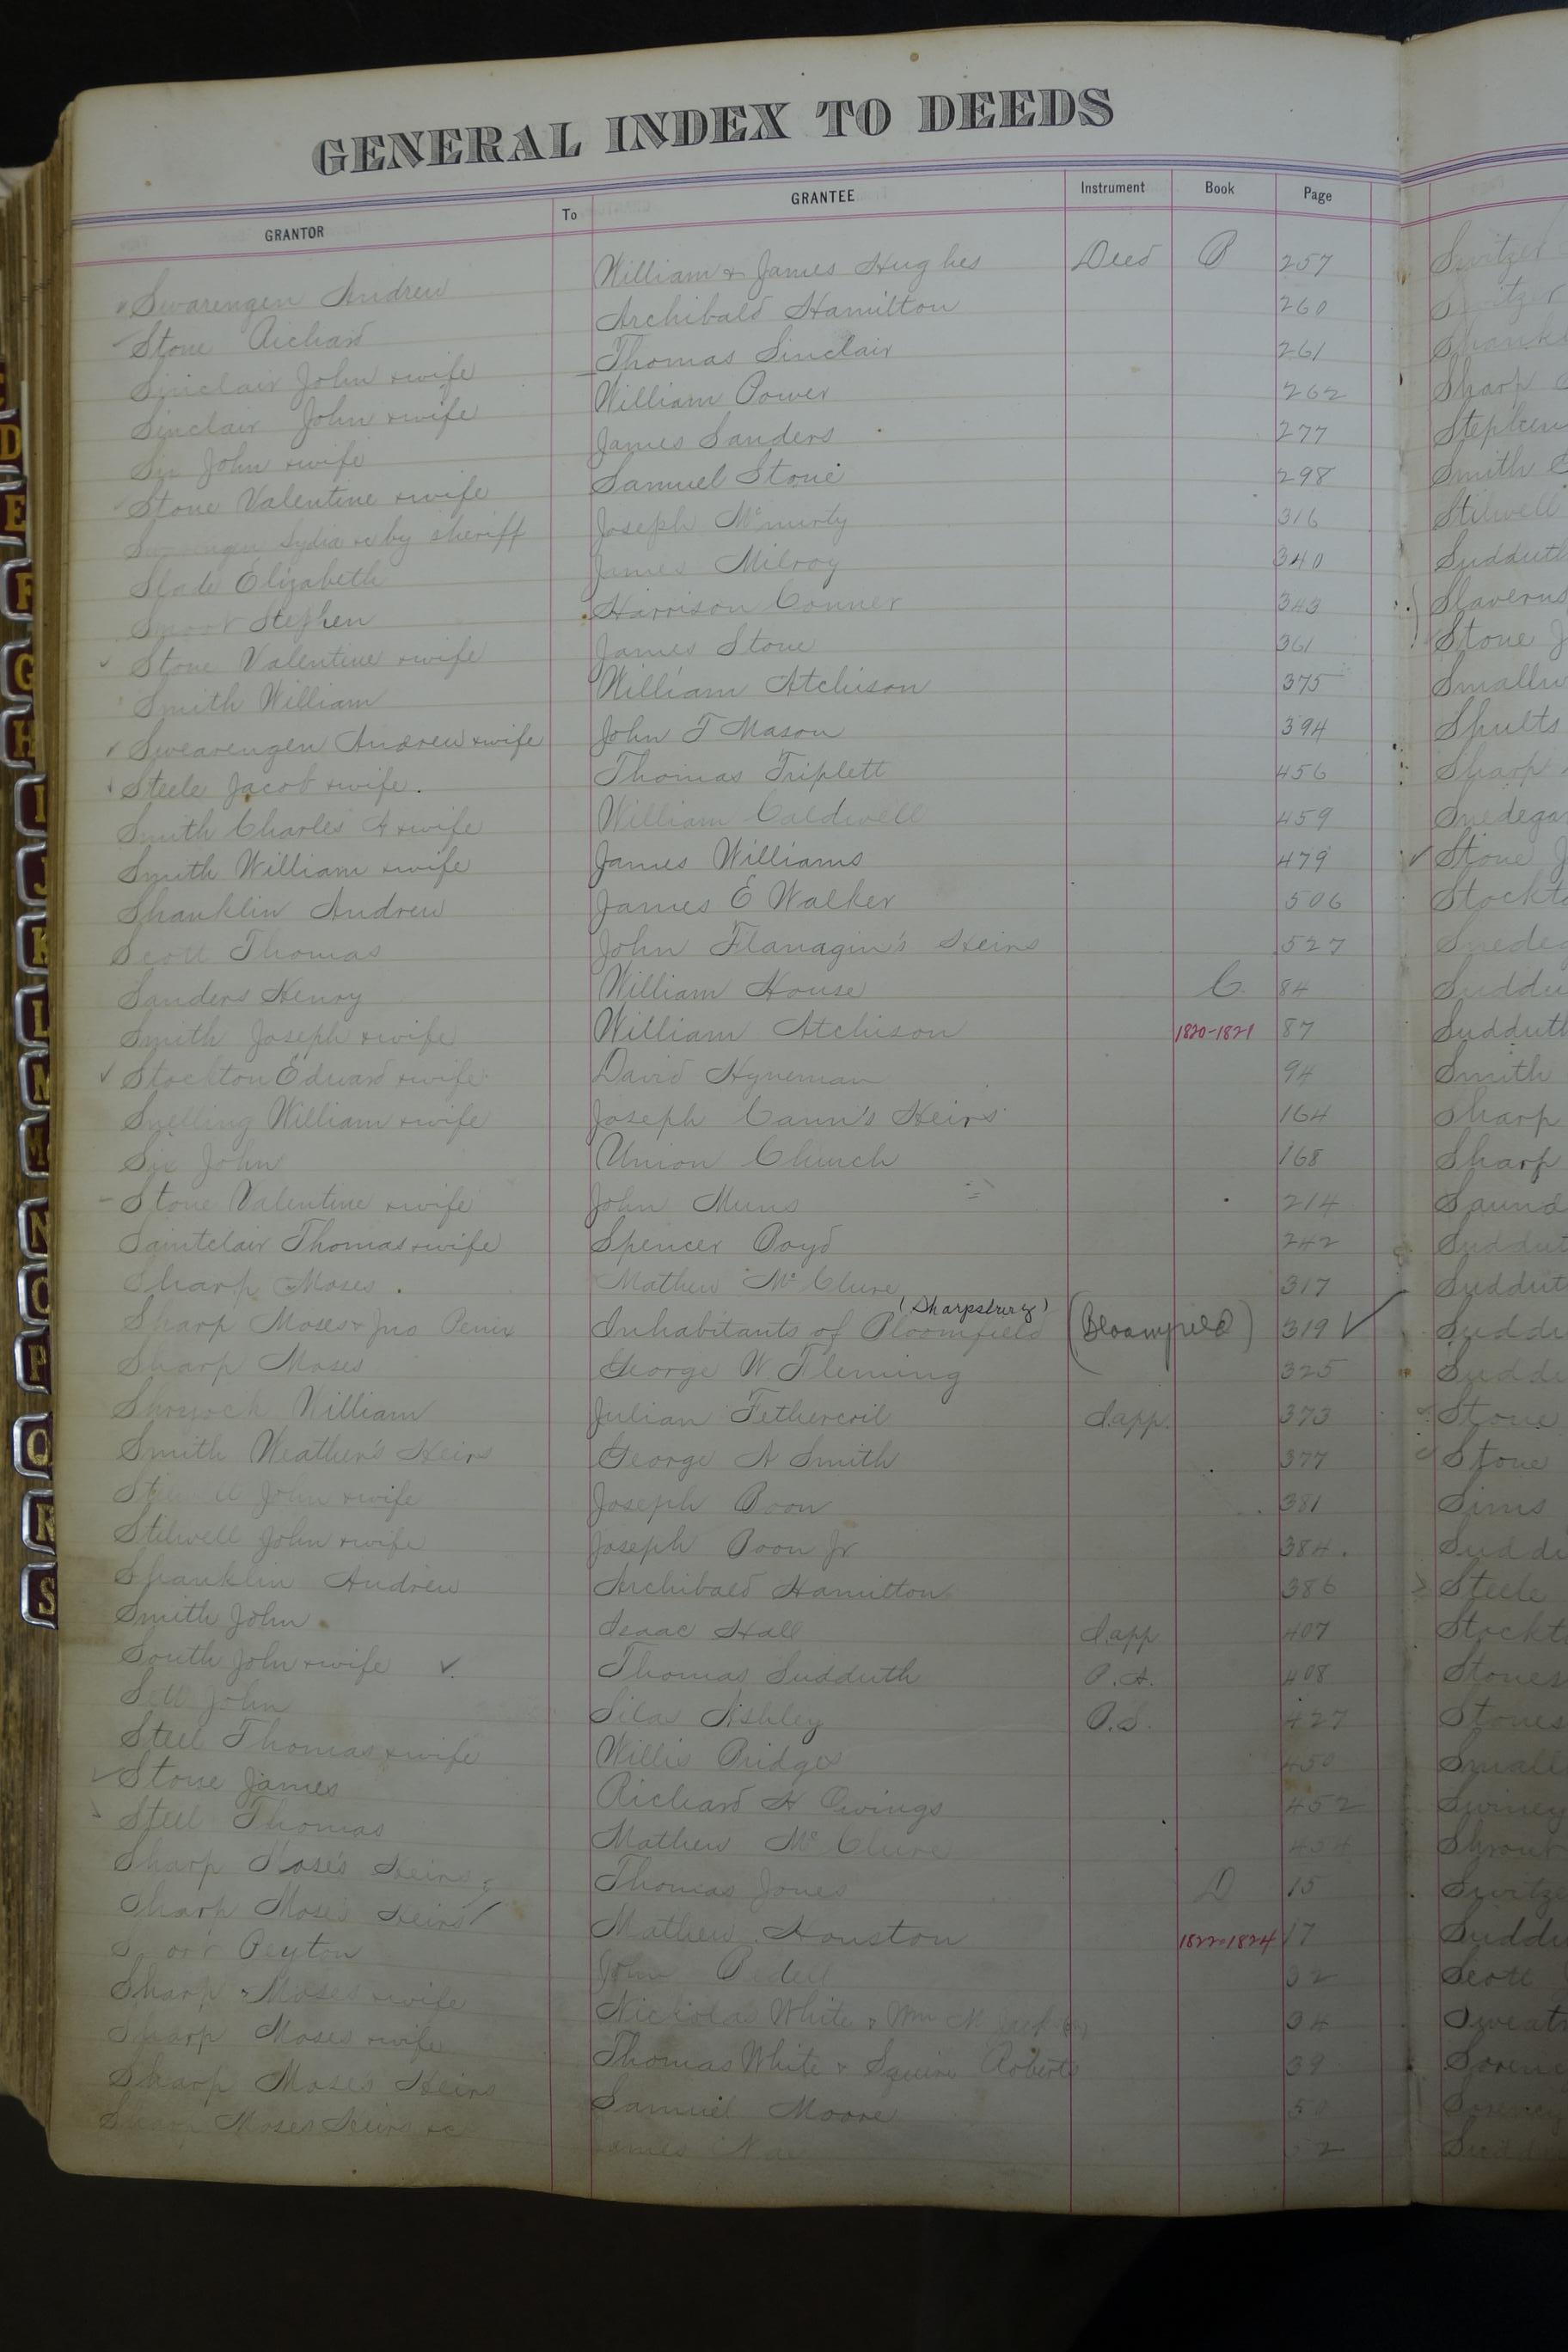 GENERAL INDEX TO DEEDS
GRANTOR To GRANTEE Instrument Book Page
Swarengen Andrew William & James Hughes Deed B 257
Stone Richard Archibald Hamilton 260
Sinclair John & wife Thomas Sinclair 261
Sinclair John & wife William Power 262
Six John & wife James Sanders 277
Stone Valentine & wife Samuel Stone 298
Lydia &c by sheriff Joseph McMurty 316
Slade Elizabeth James Milroy 340
Smoot Stephen Harrison Conner 343
Stone Valentine & wife James Stone 361
Smith William William Atchison 375
Swearengen Andrew & wife John T Mason 394
Steele Jacob & wife Thomas Triplett 456
Smith Charles A & wife William Caldwell 459
Smith William & wife James Williams 479
Shanklin Andrew James E Walker 506
Scott Thomas John Flanagin's Heirs 527
Sanders Henry William House C 84
Smith Joseph & wife William Atchison 1820-1821 87
Stockton Edward & wife David Hyneman 94
Snelling William & wife Joseph Cann's Heirs 164
Six John Union Church 168
Stone Valentine & wife John Muns 214
Saintclair Thomas & wife Spencer Boyd 242
Sharp Moses Mathew McClure 317
(Sharpsburg)
Sharp Moses & Jno Penix Inhabitants of Bloomfield (Bloomfield) 319 ✓
Sharp Moses George W Fleming 325
Shrojock William Julian Fethercoil I.app. 373
Smith Weather's Heirs George A Smith 377
John & wife Joseph Boon 381
Stilwell John & wife Joseph Boon Jr 384
Shanklin Andrew Archibald Hamilton 386
Smith John Isaac Hall I.app 407
South John & wife ✓ Thomas Sudduth P.A. 408
John Silas Ashley P.S. 427
Steel Thomas & wife Willis Bridges 450
Stone James Richard H Owings 452
Steel Thomas Mathew McClure 454
Sharp Moses Heirs Thomas Jones D 15
Sharp Moses Heirs Mathew Houston 1822-1824 17
Peyton John 32
Sharp Moses & wife Nicholas White & Wm N Jackson 34
Sharp Moses & wife Thomas White & Squire Roberts 39
Sharp Moses Heirs Samuel Moore 50
Sharp Moses Heirs &c James 52
Switzer
Switzer
Shanks
Sharp
Stephen
Smith
Stilwell
Sudduth
Slaverns
Stone J
Smallw
Shults
Sharp
Snedegar
Stone J
Stockto
Snedeg
Suddu
Sudduth
Smith
Sharp
Sharp
Saund
Suddut
Suddut
Suddu
Sudde
Stone
Stone
Sims
Suddu
Steele
Stockt
Stones
Stones
Small
Swiney
Shrout
Switze
Suddu
Scott
Sweatn
Soren
D
E
F
G
H
I
J
K
L
M
Mc
N
O
P
Q
R
S